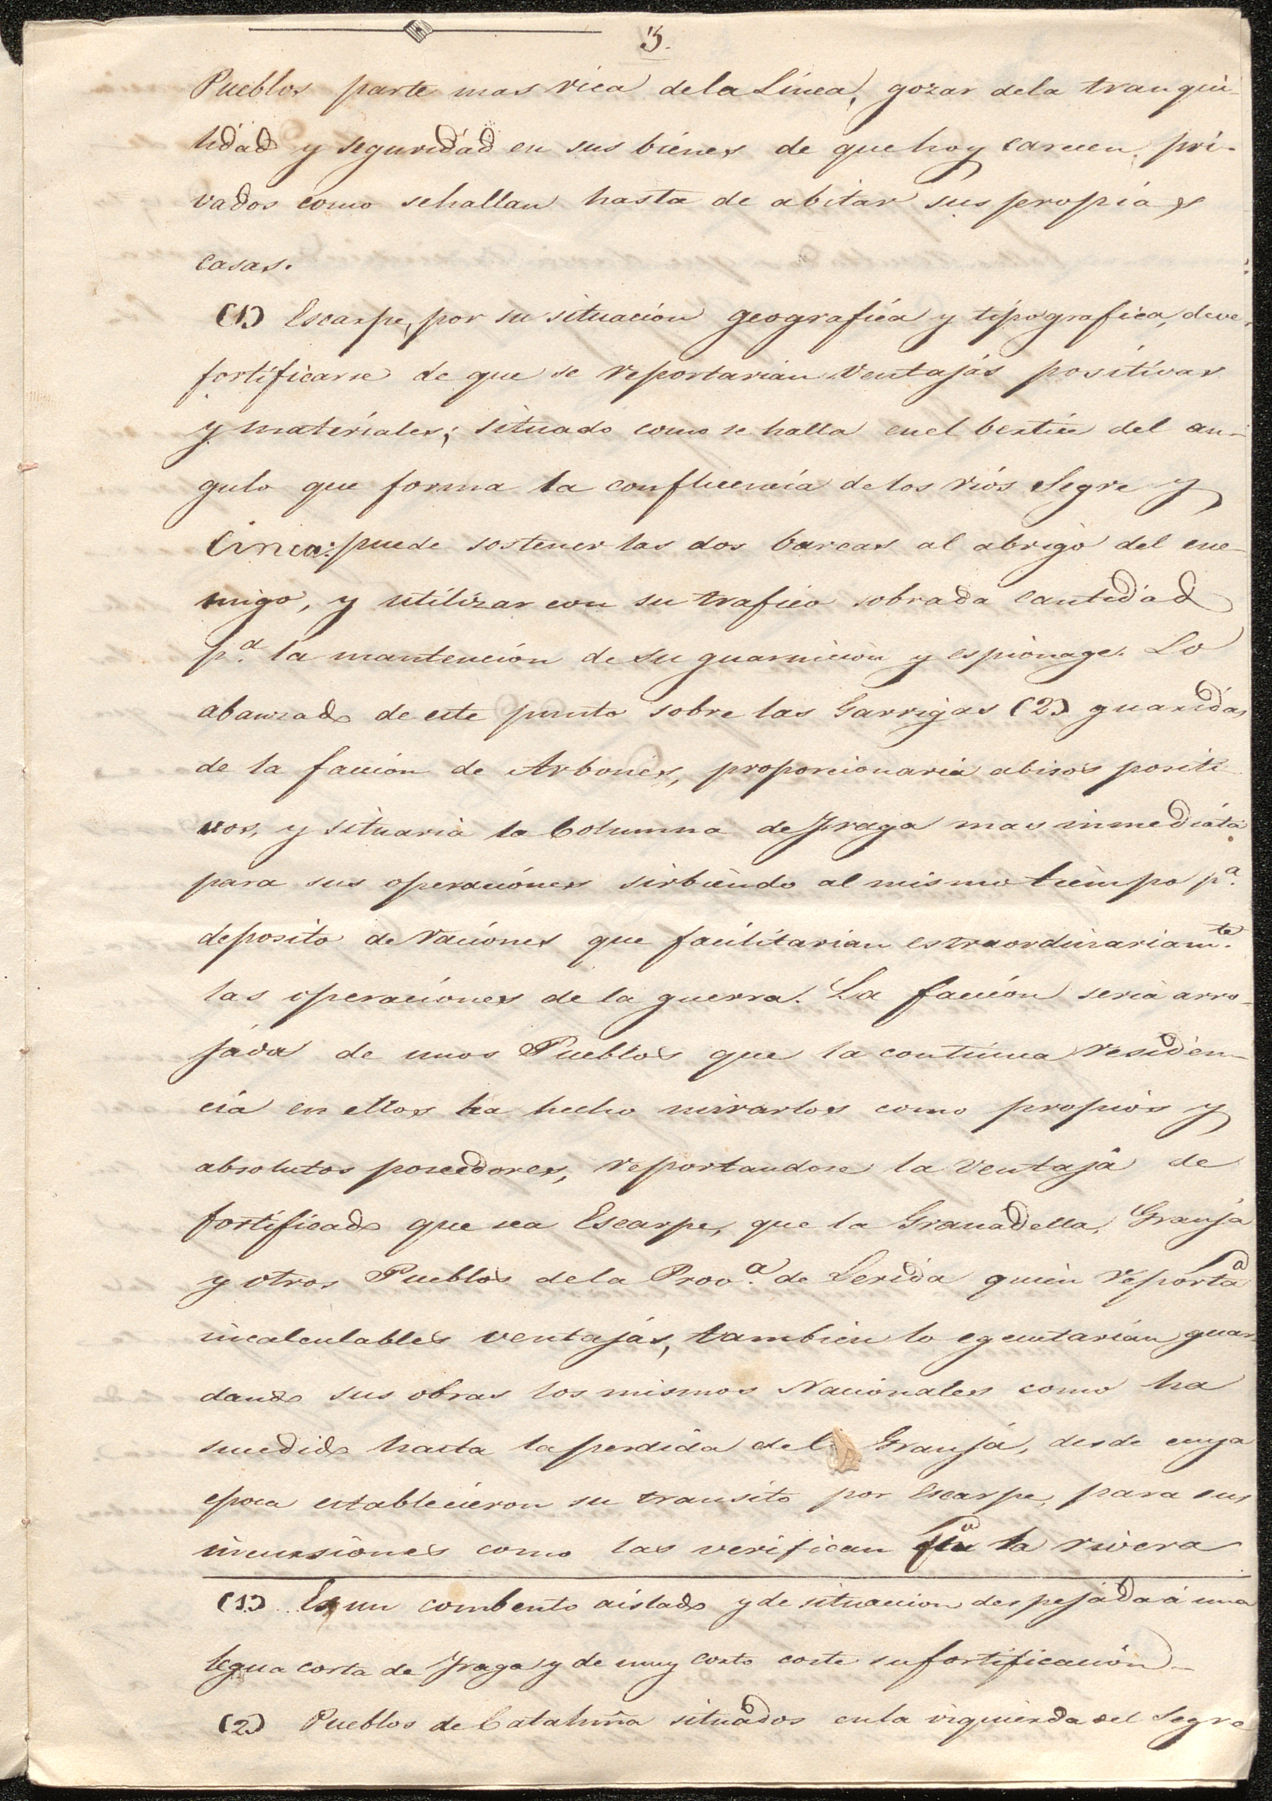 3.
Pueblos parte mas rica dela Linea, gozar dela tranqui-
lidad y seguridad en sus bienes de que hoy carecen, pri-
vados como sehallan hasta de abitar sus propias
casas.
(1.) Escarpe, por su situación geografica y tipografica, deve
fortificarse de que se reportarian ventajas positivas
y materiales; situado como se halla enel bertice del an-
gulo que forma la confluencia delos rios Segre y
Cinca: puede sostener las dos barcas al abrigo del ene-
migo, y utilizar con su trafico sobrada cantidad
pª. la mantención de su guarnición y espionage. Lo
abanzado de este punto sobre las Garrigas (2) guaridas
de la faccion de Arbones, proporcionaria abisos positi-
vos, y situaria la Columna de Fraga mas inmediata
para sus operaciones sirbiendo al mismo tiempo pª.
deposito de raciones que facilitarian estraordinariamte.
las operaciones de la guerra. La facción seria arro-
jada de unos Pueblos que la continua residen-
cia en ellos ha hecho mirarlos como propios y
absolutos poseedores, reportandose la ventaja de
fortificado que sea Escarpe, que la Granadella, Granja
y otros Pueblos dela Provª. de Lerida quien reporta
incalculables ventajas, tambien lo egecutarian guar
dando sus obras los mismos Nacionales como ha
sucedido hasta la perdida de la Granja, desde cuya
epoca establecieron su transito por Escarpe, para sus
incursiones como las verifican la rivera
(1.) Es un combento aislado y de situaccion despejada á una
legua corta de Fraga y de muy corto coste su fortificación
(2.) Pueblos de Cataluña situados enla izquierda del Segre